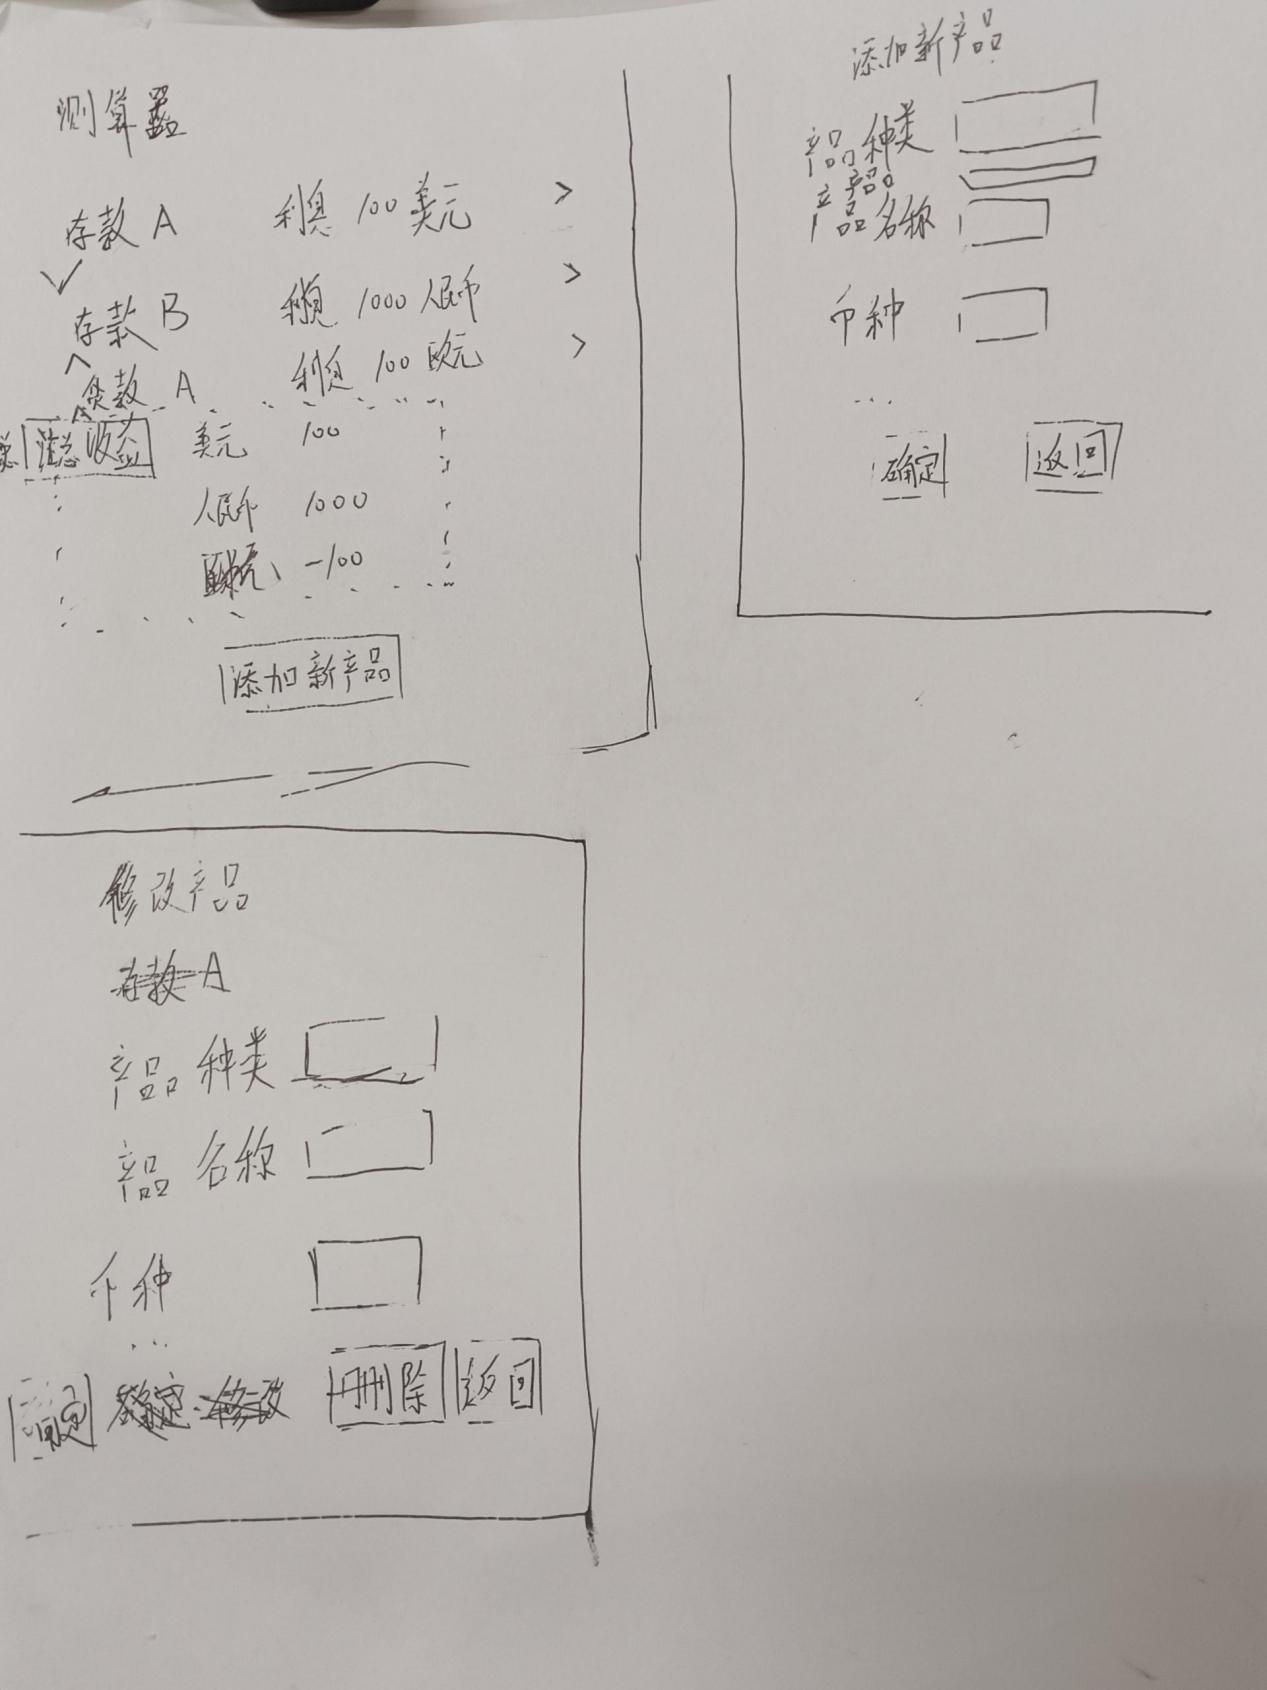 测算器
存款 A 利息 100 美元 >
存款 B 利息 1000 人民币 >
贷款 A 利息 100 欧元 >
总收益 美元 100
人民币 1000
欧元 -100
添加新产品
添加新产品
产品种类
产品
产品名称
币种
...
确定 返回
修改产品
存款 A
产品 种类
产品 名称
币种
...
确定 确定 修改 删除 返回